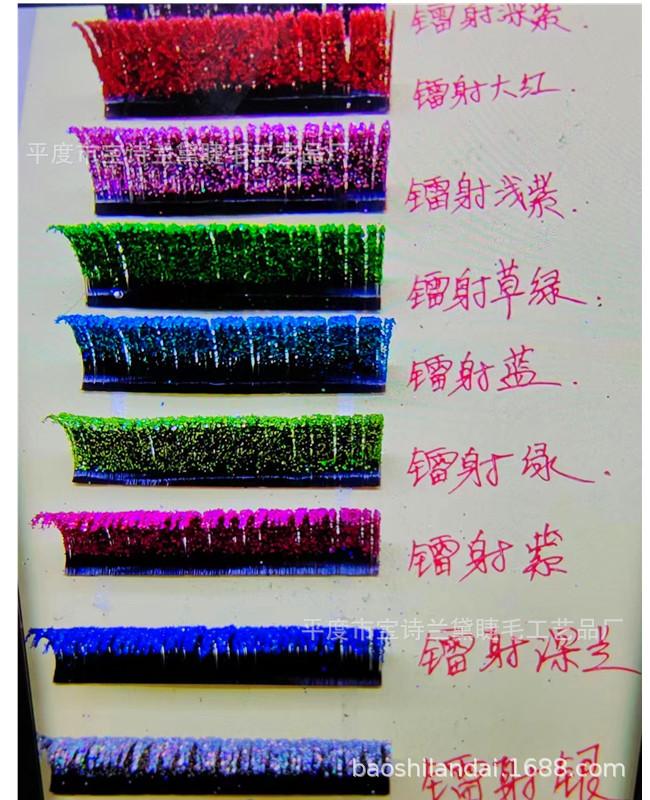 镭射深紫.
镭射大红.
平度市宝诗兰黛睫毛工艺品厂
镭射浅紫.
镭射草绿.
镭射蓝.
镭射绿.
镭射紫
平度市宝诗兰黛睫毛工艺品厂
镭射深兰
baoshilandai.1688.com
镭射银